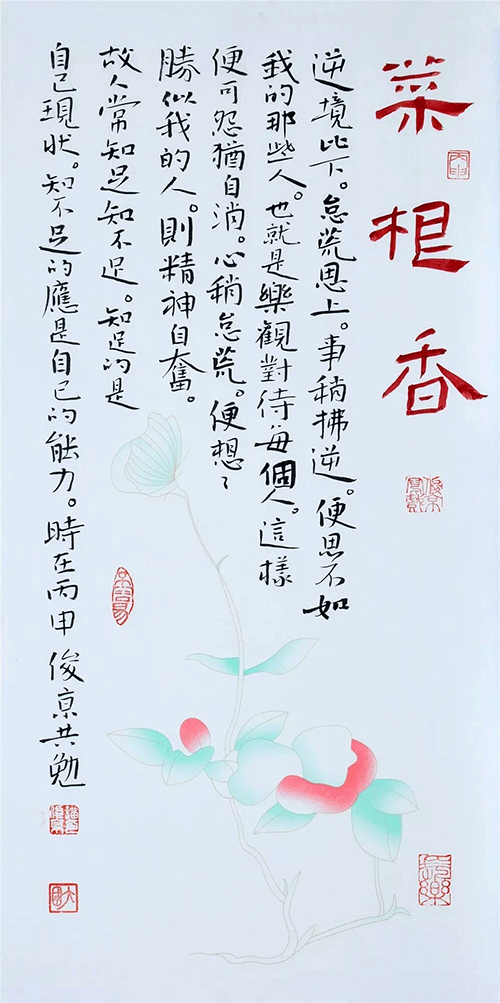 菜根香
丙申
逆境比下。怠荒思上。事稍拂逆。便思不如
我的那些人。也就是樂觀對待每個人。這樣
便可怨猶自消。心稍怠荒。便想了
勝似我的人。則精神自奮。
故人常知足知不足。知足的是
自己現狀。知不足的應是自己的能力。時在丙申 俊京共勉
長樂